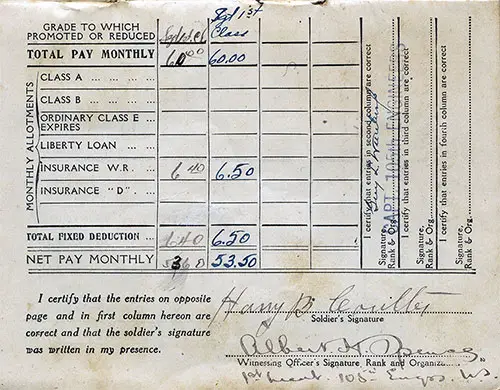 GRADE TO WHICH
PROMOTED OR REDUCED
Sgt 1st
Class
TOTAL PAY MONTHLY 60.00 60.00
MONTHLY ALLOTMENTS
CLASS A ... ... ...
CLASS B ... ... ...
ORDINARY CLASS E ...
EXPIRES
LIBERTY LOAN ... ...
INSURANCE W.R. ... 6 40 6.50
INSURANCE "D" . ...
TOTAL FIXED DEDUCTION ... 6.40 6.50
NET PAY MONTHLY 53.50
I certify that entries in second column are correct
Signature,
Rank & Org.
CAPT. 105th ENGINEERS
I certify that entries in third column are correct
Signature,
Rank & Org.
I certify that entries in fourth column are correct
Signature,
Rank & Org.
I certify that the entries on opposite
page and in first column hereon are
correct and that the soldier's signature
was written in my presence.
Harry B
Soldier's Signature
Albert H.
Witnessing Officer's Signature, Rank and Organiz
1st Lieut. 105th Engrs. US